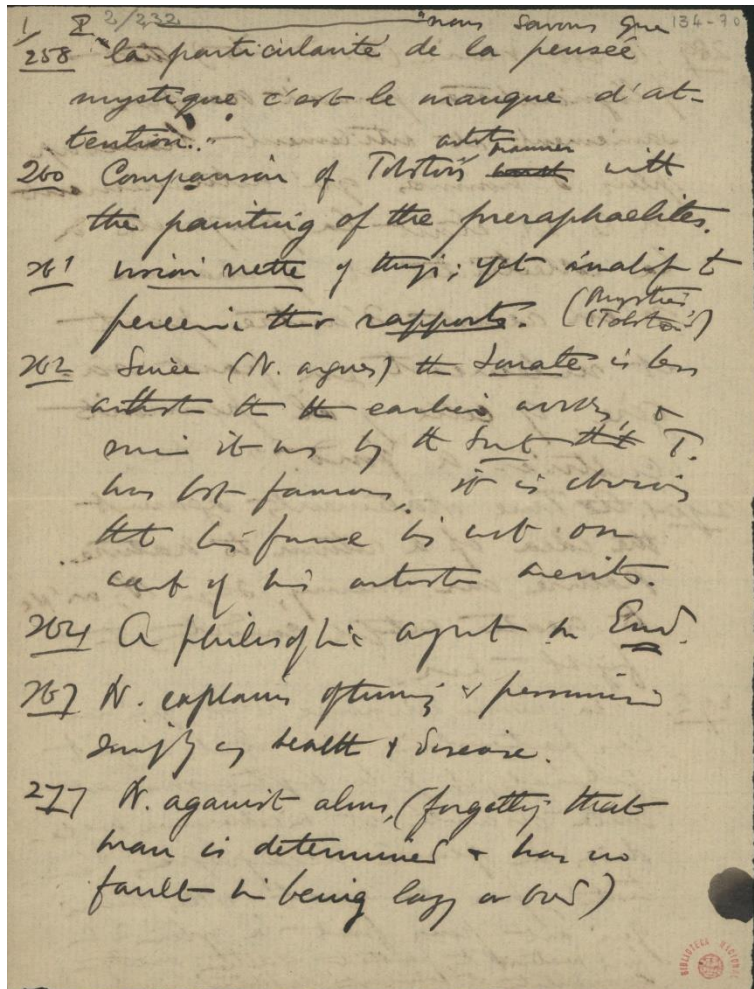 1/ II 2/232 "nous savons que 134-70
258 la particularité de la pensée
mystique c'est le manque d'at-
tention."
artist
260 Comparison of Tolstoi's manner with
the painting of the preraphaelites.
261 vision nette of things; yet inability to
perceive their rapports. (Mystics
(Tolstoi)
262 Since (N. argues) the Sonate is less
artistic than the earlier works, &
since it was by the Sonate that T.
has got famous, it is obvious
that his fame is not on
acct of his artistic merits.
264 A philosophic argument to End.
267 N. explains optimism & pessimism
simply as health & disease.
277 N. against alms, (forgetting that
man is determined & has no
fault in being lazy or bad)
BIBLIOTECA NACIONAL